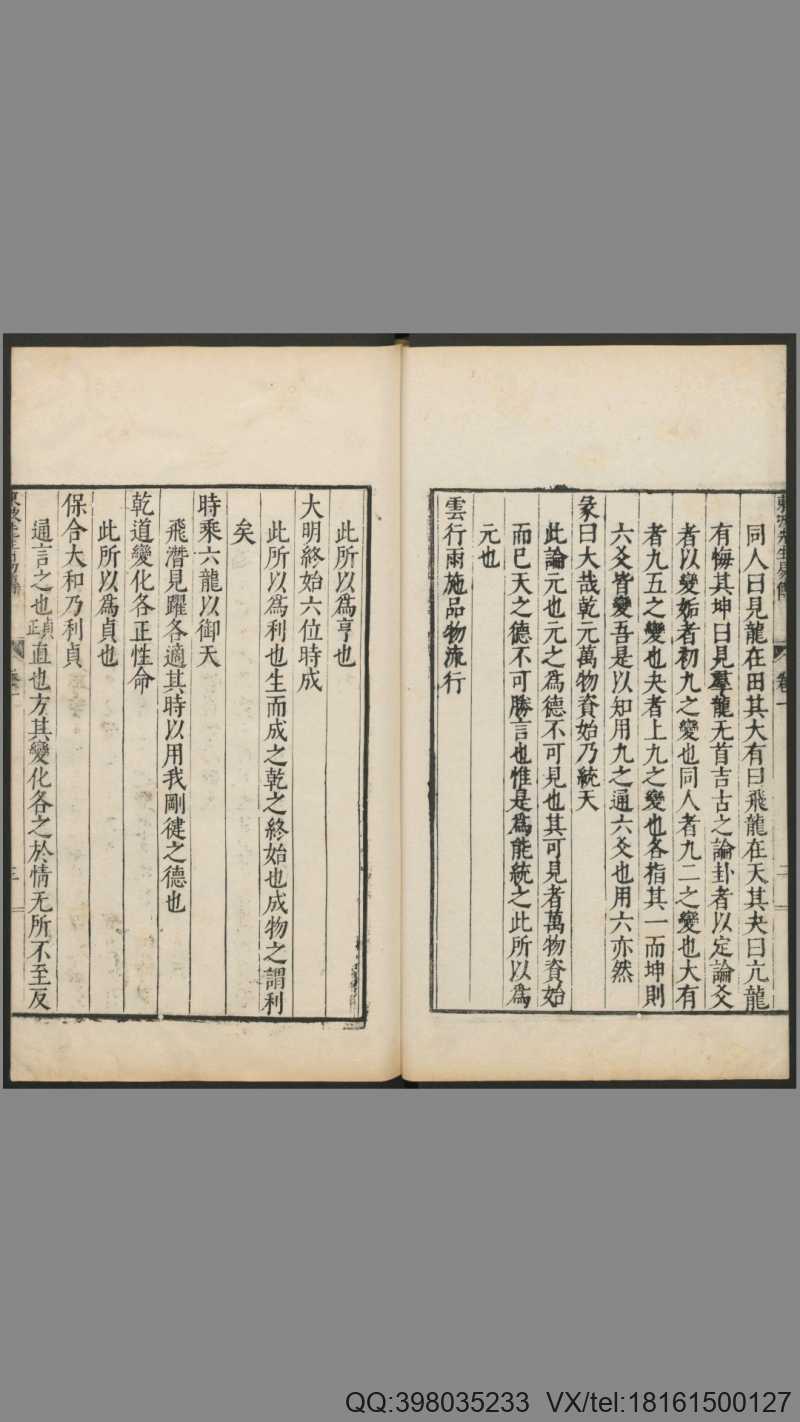 同人曰見龍在田其大有曰飛龍在天其夬曰亢龍
有悔其坤曰見羣龍无首吉古之論卦者以定論爻
者以變姤者初九之變也同人者九二之變也大有
者九五之變也夬者上九之變也各指其一而坤則
六爻皆變吾是以知用九之通六爻也用六亦然
彖曰大哉乾元萬物資始乃統天
此論元也元之爲德不可見也其可見者萬物資始
而已天之德不可勝言也惟是爲能統之此所以爲
元也
雲行雨施品物流行
此所以爲亨也
大明終始六位時成
此所以爲利也生而成之乾之終始也成物之謂利
矣
時乘六龍以御天
飛潛見躍各適其時以用我剛健之德也
乾道變化各正性命
此所以爲貞也
保合大和乃利貞
通言之也貞正直也方其變化各之於情无所不至反
QQ:398035233 VX/tel:18161500127